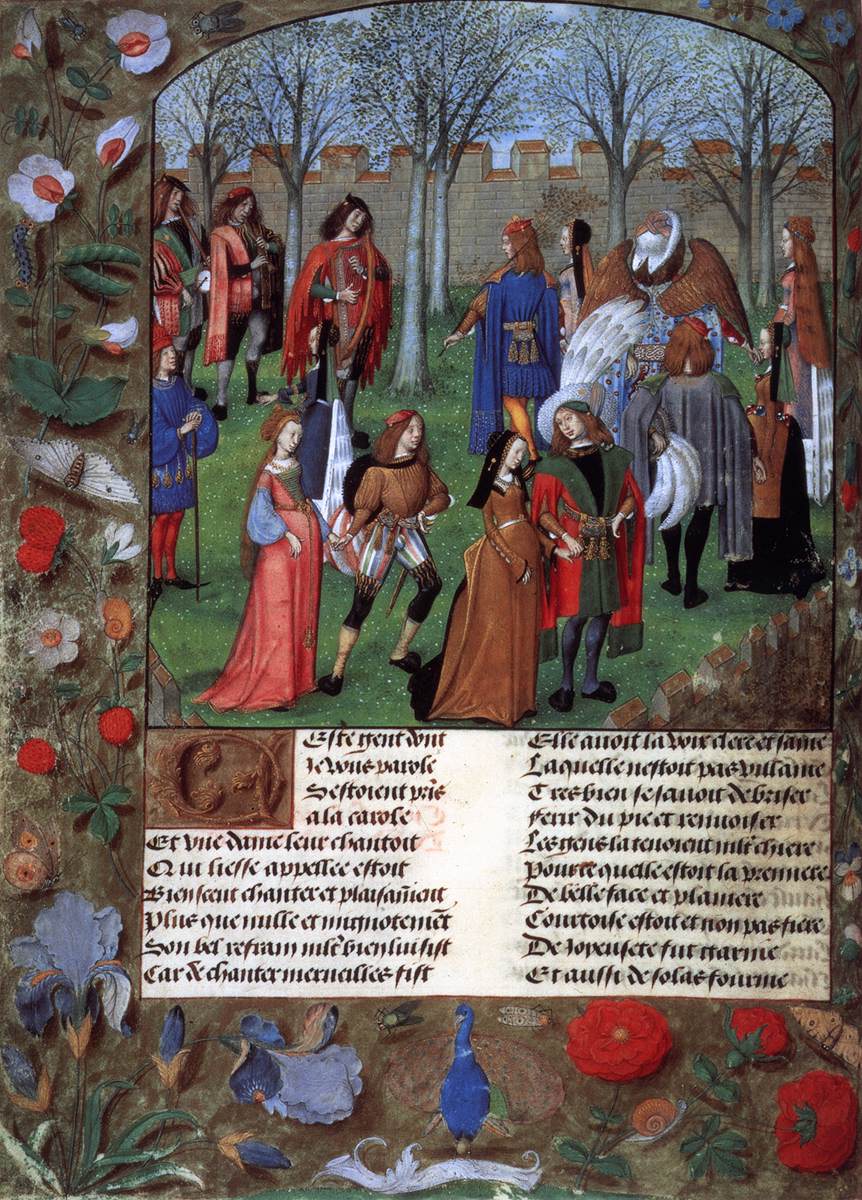 Ceste gent dont
Je vous parole
Sestoient pris
a la carole
Et vne dame leur chantoit
Qui liesse appellee estoit
Bien sceut chanter et plaisam̃ent
Plus que nulle et mignotemẽt
Son bel refrain mlt̃ bien lui sist
Car de chanter merueilles fist
Elle auoit la voix clere et saine
Laquelle nestoit pas villaine
Tres bien se sauoit debriser
Ferir du pie et renuoisier
Les gens la tenoient mlt̃ chiere
Pource quelle estoit la premiere
De belle face et planiere
Courtoise estoit et non pas fiere
De Joyeusete fut garnie
Et aussi de solas fournie